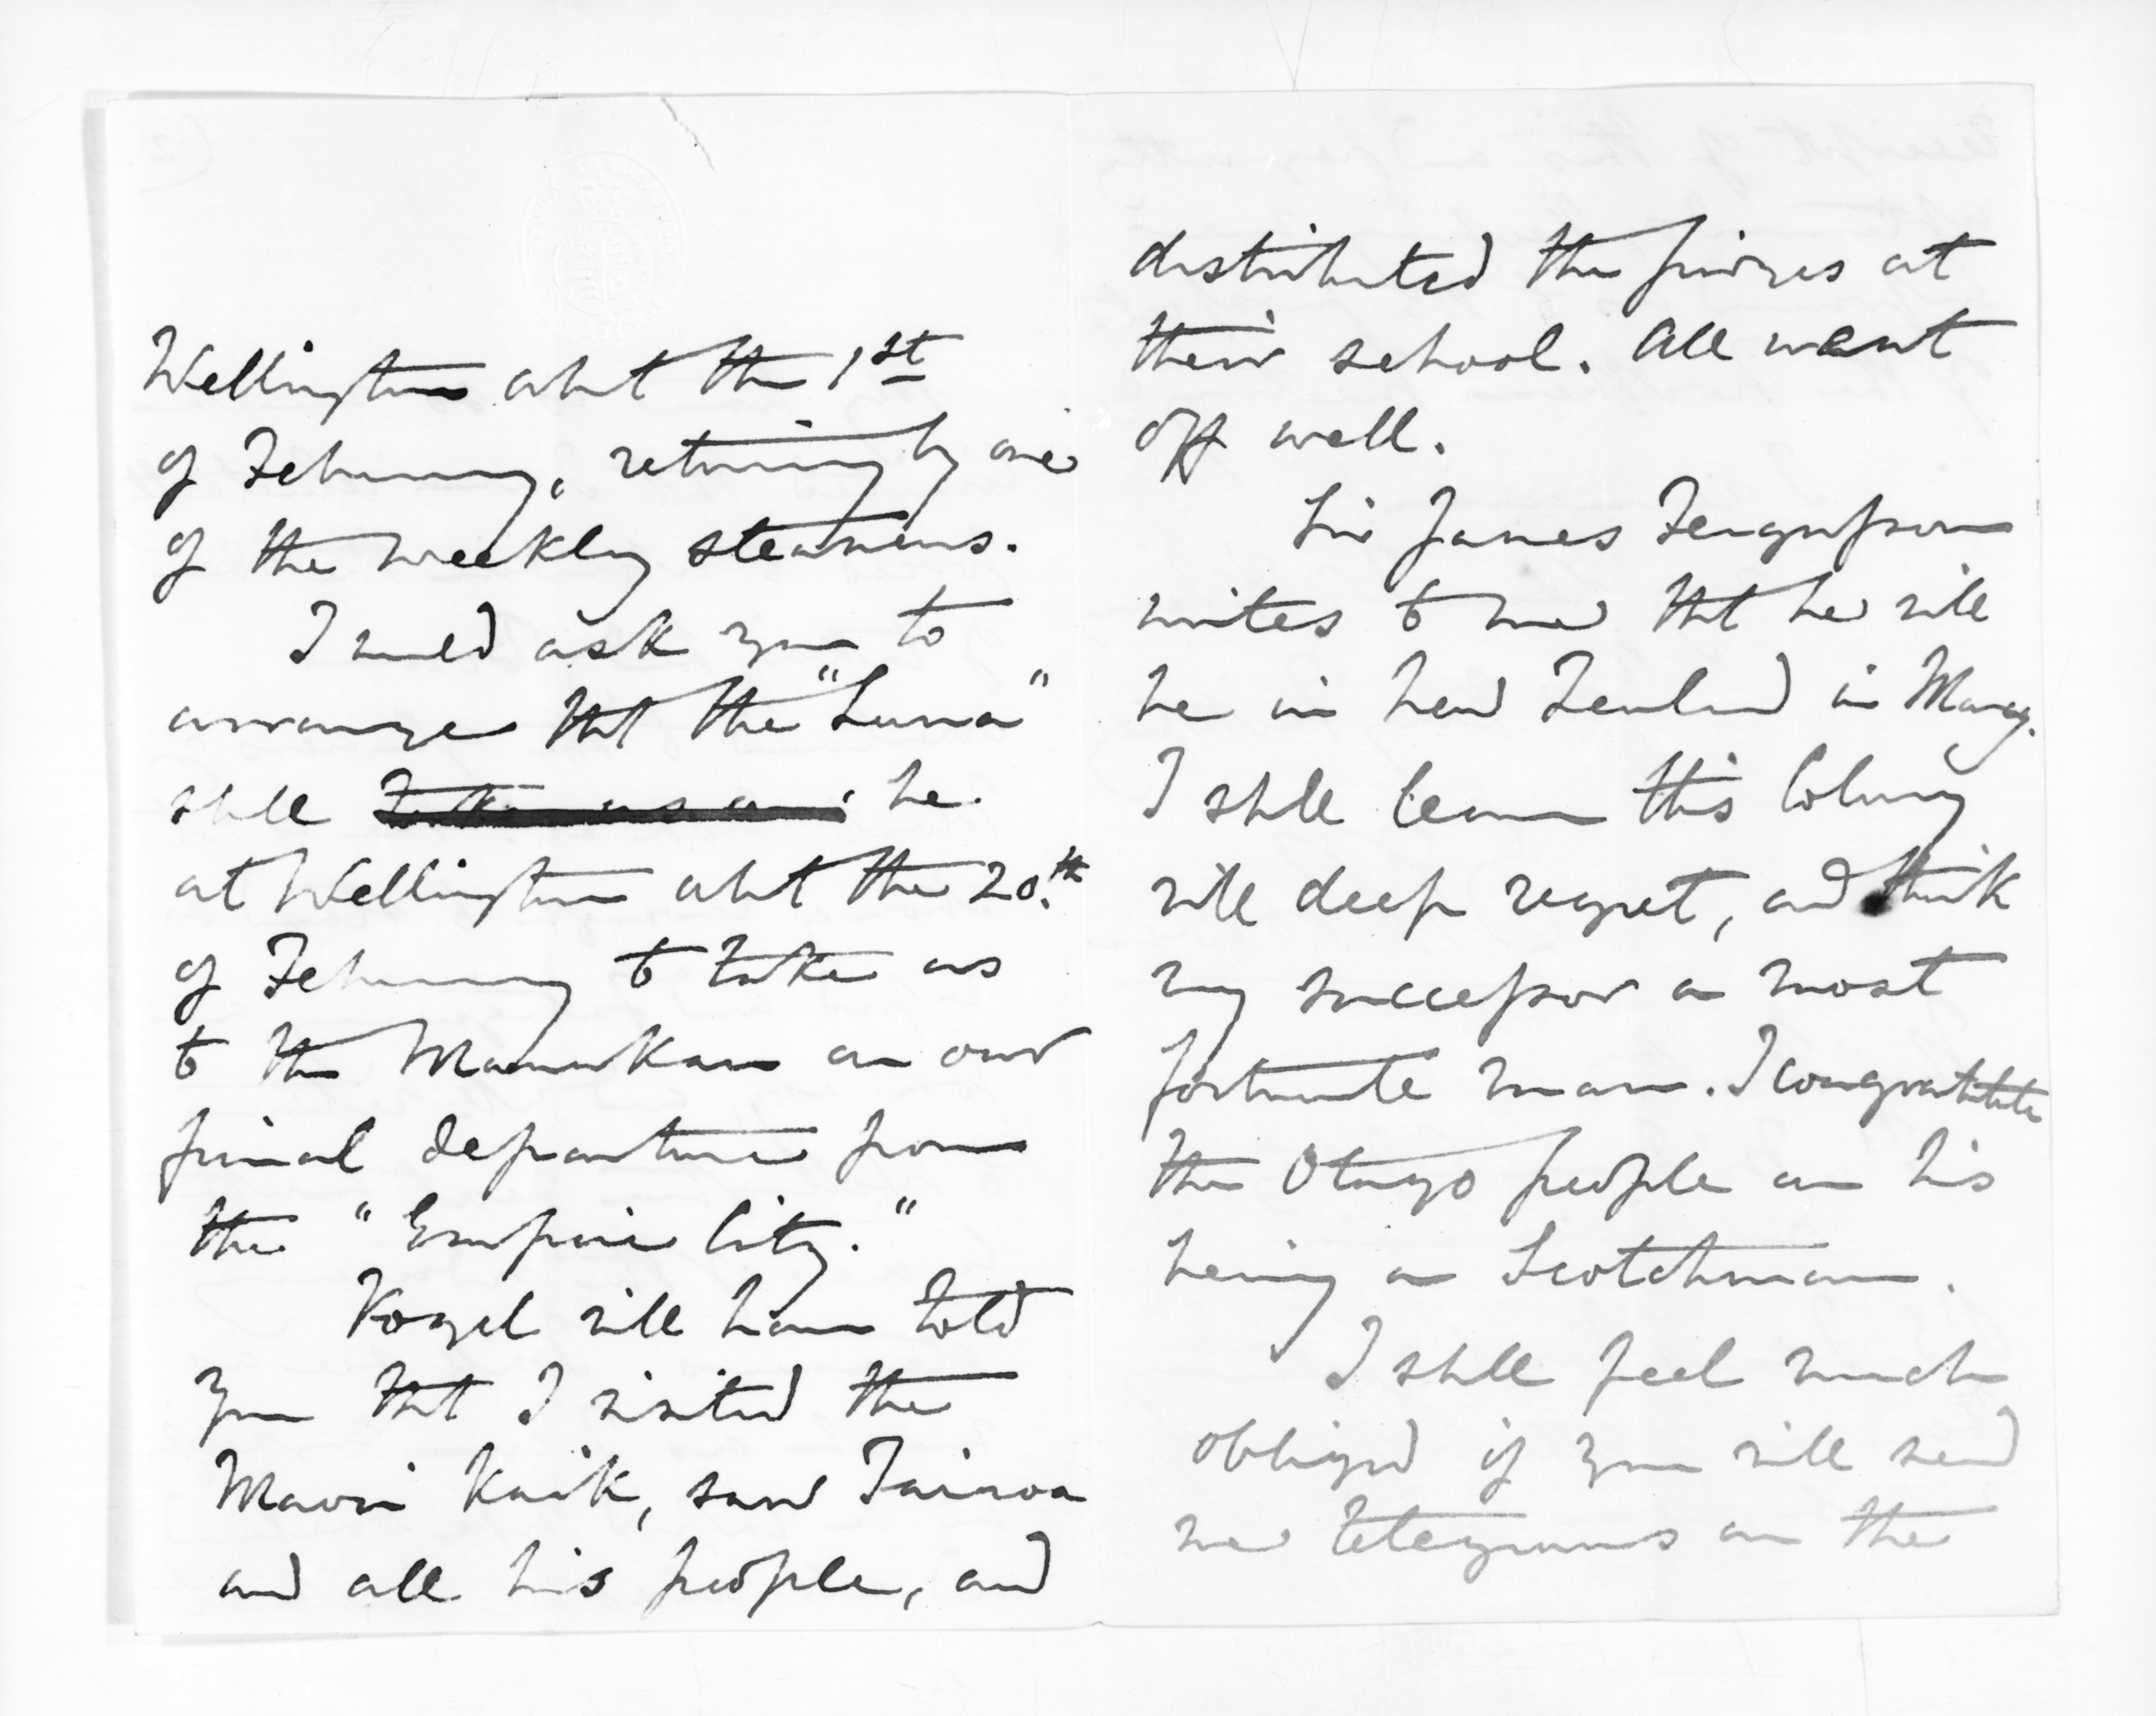 Wellington abt the 1st
of February, returning by one
of the weekly steamers.
I would ask you to
arrange tht the "Luna"
shll be
at Wellington abt the 20.th
of February to take us
to the Manukau on our
final departure from
the "Empire City."
Vogel will have told
you tht I visited the
Maori Kaik, saw Taiaroa
and all his people, and
distributed the prizes at
their school. All went
off well.
Sir James Fergusson
writes to me tht he will
be in New Zealand in March.
I shll leave this Colony
with deep regret, and think
my successor a most
fortunate man. I congratulate
the Otago people on his
being a Scotchman.
I shll feel much
obliged if you will send
me telegrams on the